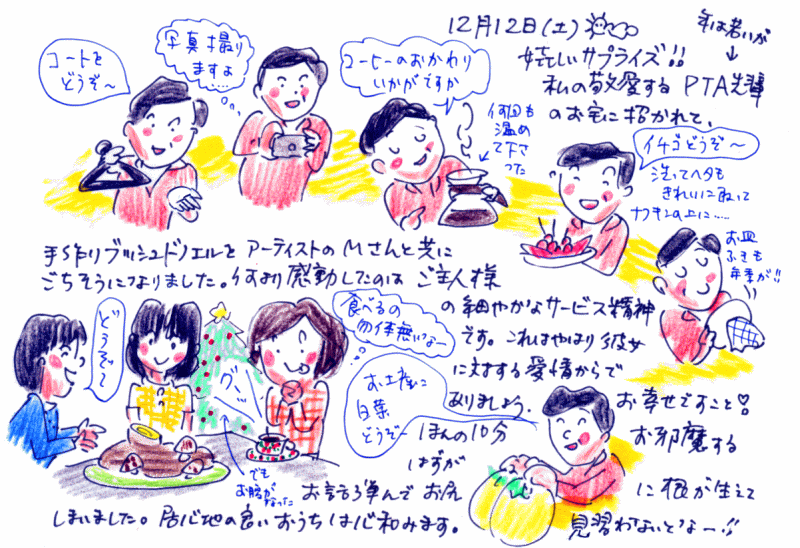 12月12日(土)
嬉しいサプライズ!!
年は若いが
私の敬愛する PTA先輩
のお宅に招かれて、
コートを
どうぞ〜
写真撮り
ますよ…
コーヒーのおかわり
いかがですか
何回も
温め
て下さ
った
イチゴどうぞ〜
洗ってヘタも
きれいに取って
ナフキンの上に……
お皿
ふきも
年季が!!
手作りブッシュドノエルを アーティストのMさんと共に
ごちそうになりました。何より感動したのは ご主人様
の細やかなサービス精神
です。これはやはり彼女
に対する愛情からで
ありましょう。
お幸せですこと♡
どうぞ〜
食べるの
勿体無いなー
グッ
でも
お腹が
なった
お土産に
白菜
どうぞー
ほんの10分
お邪魔する
はずが
お話弾んで お尻
に根が生えて
しまいました。居心地の良いおうちは心和みます。
見習わないとなー!!